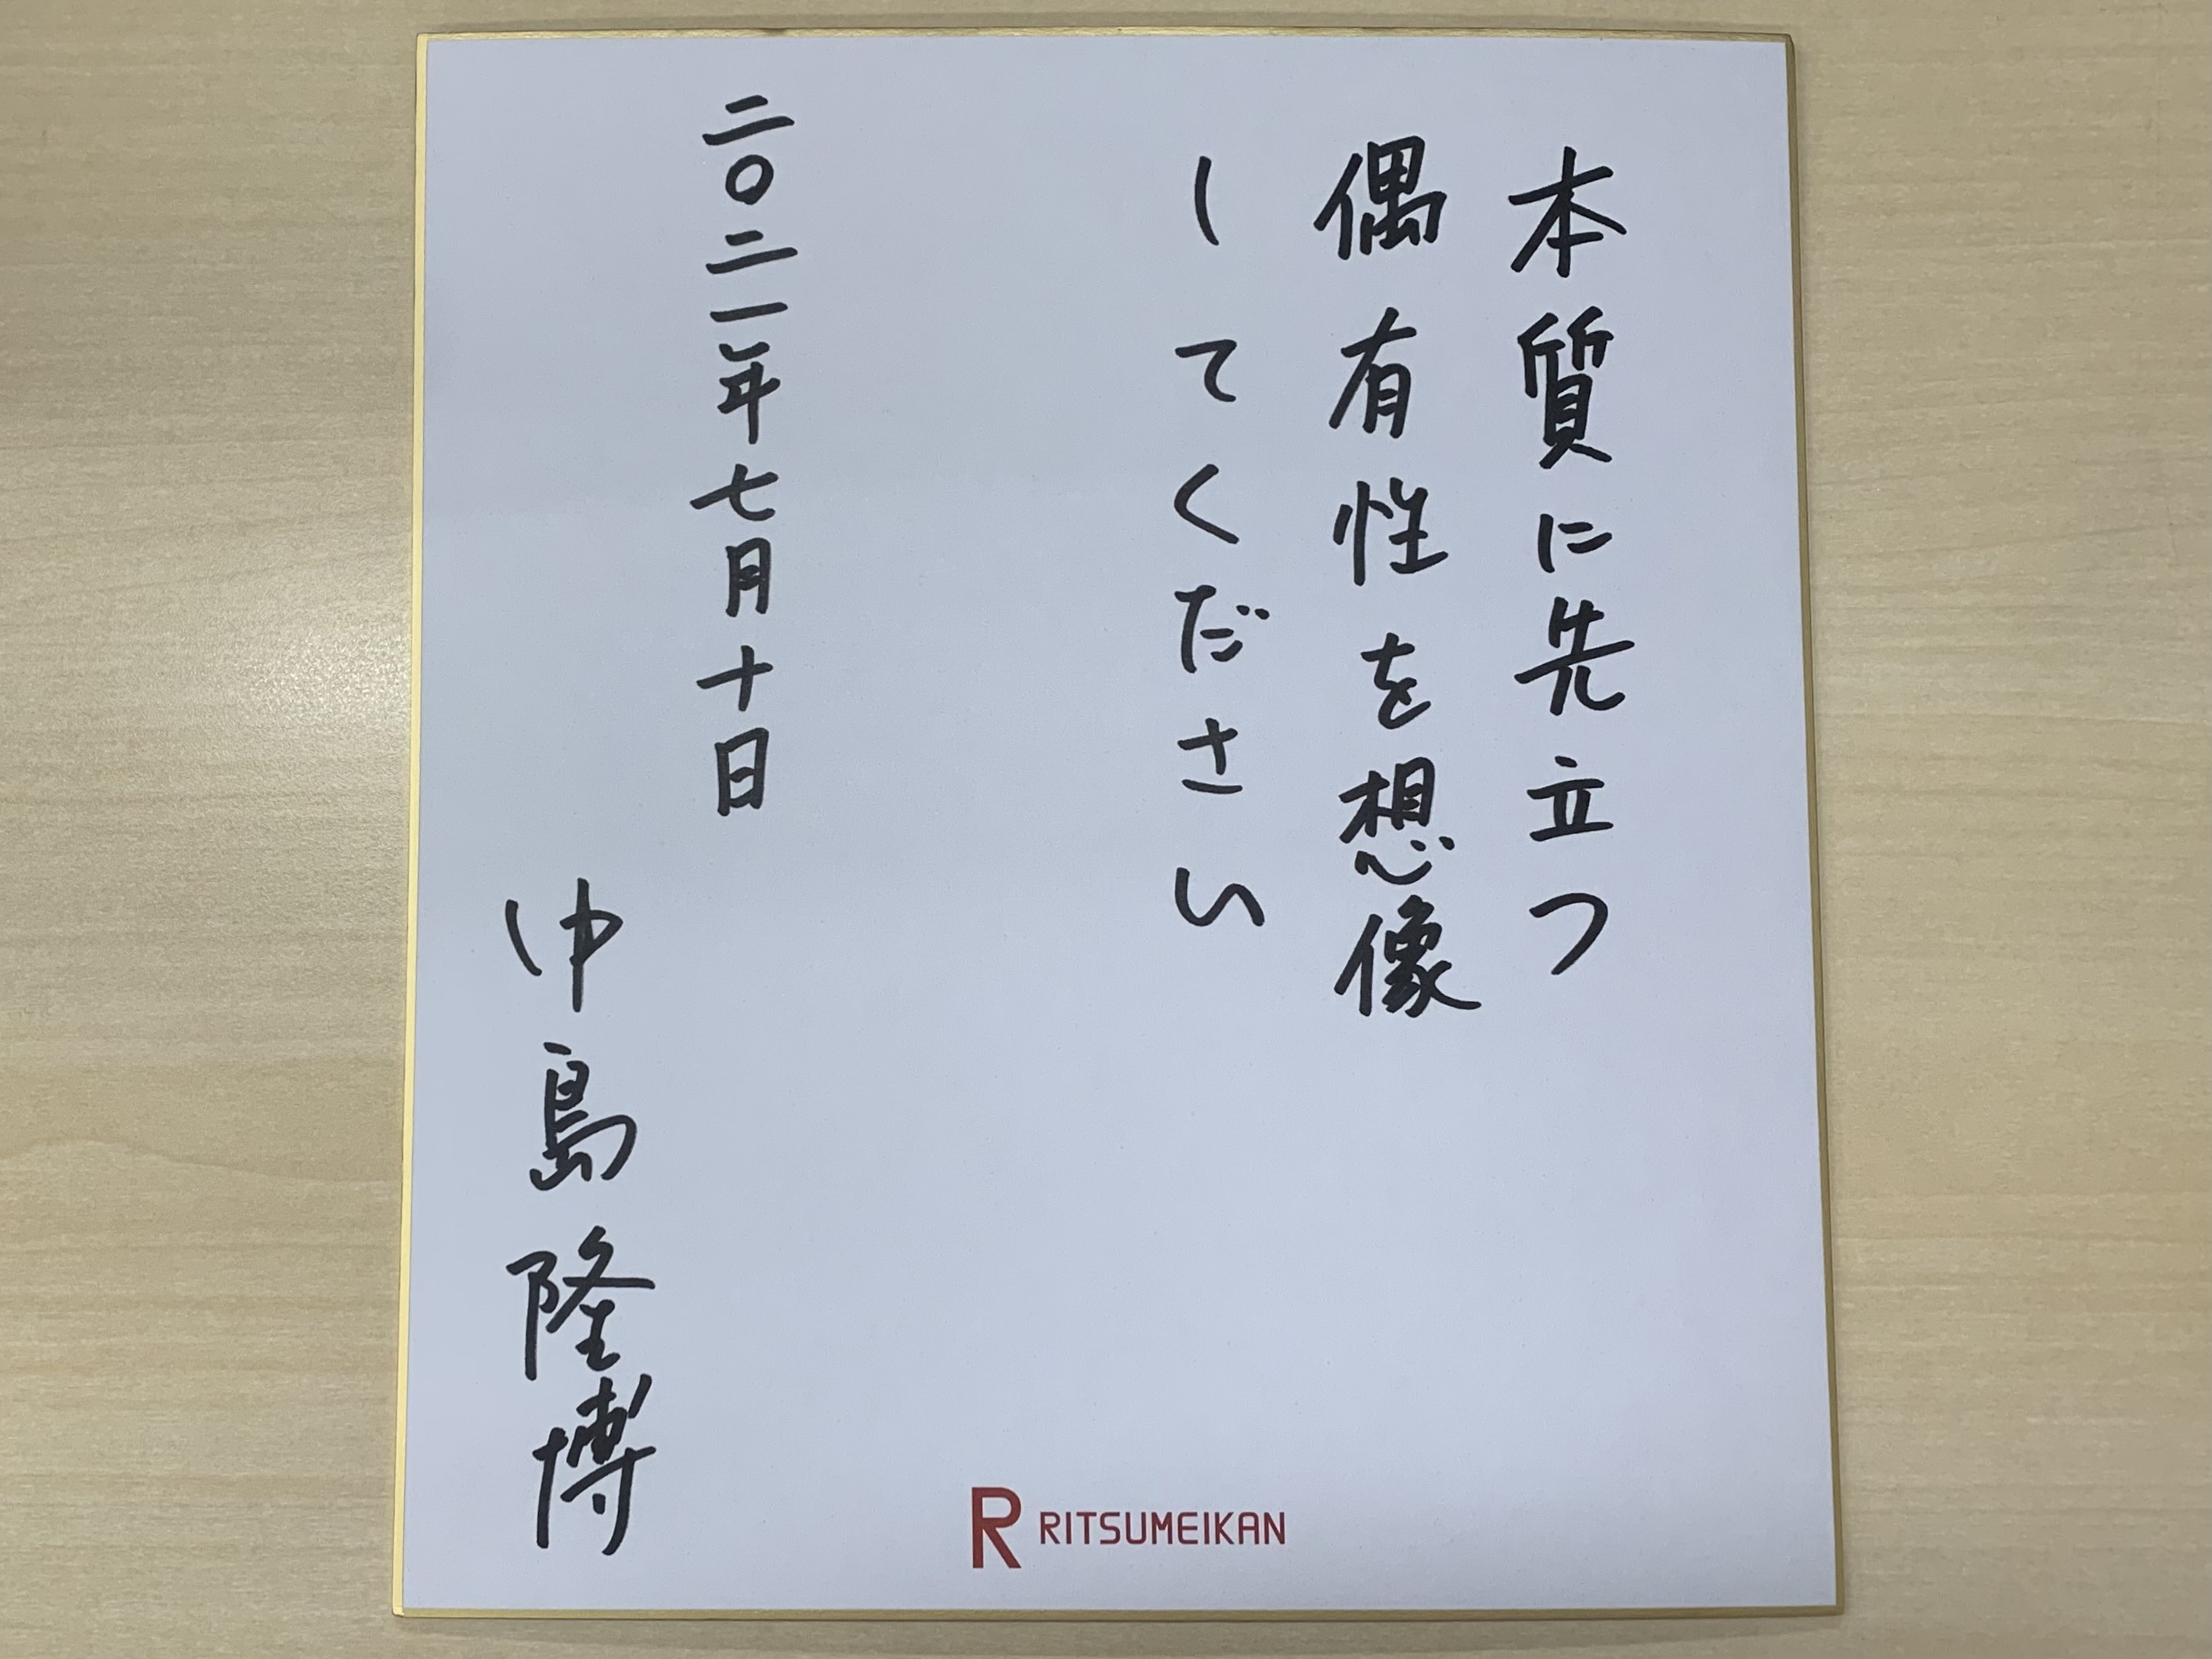 本質に先立つ
偶有性を想像
してください
二〇二一年七月十日
中島隆博
R RITSUMEIKAN